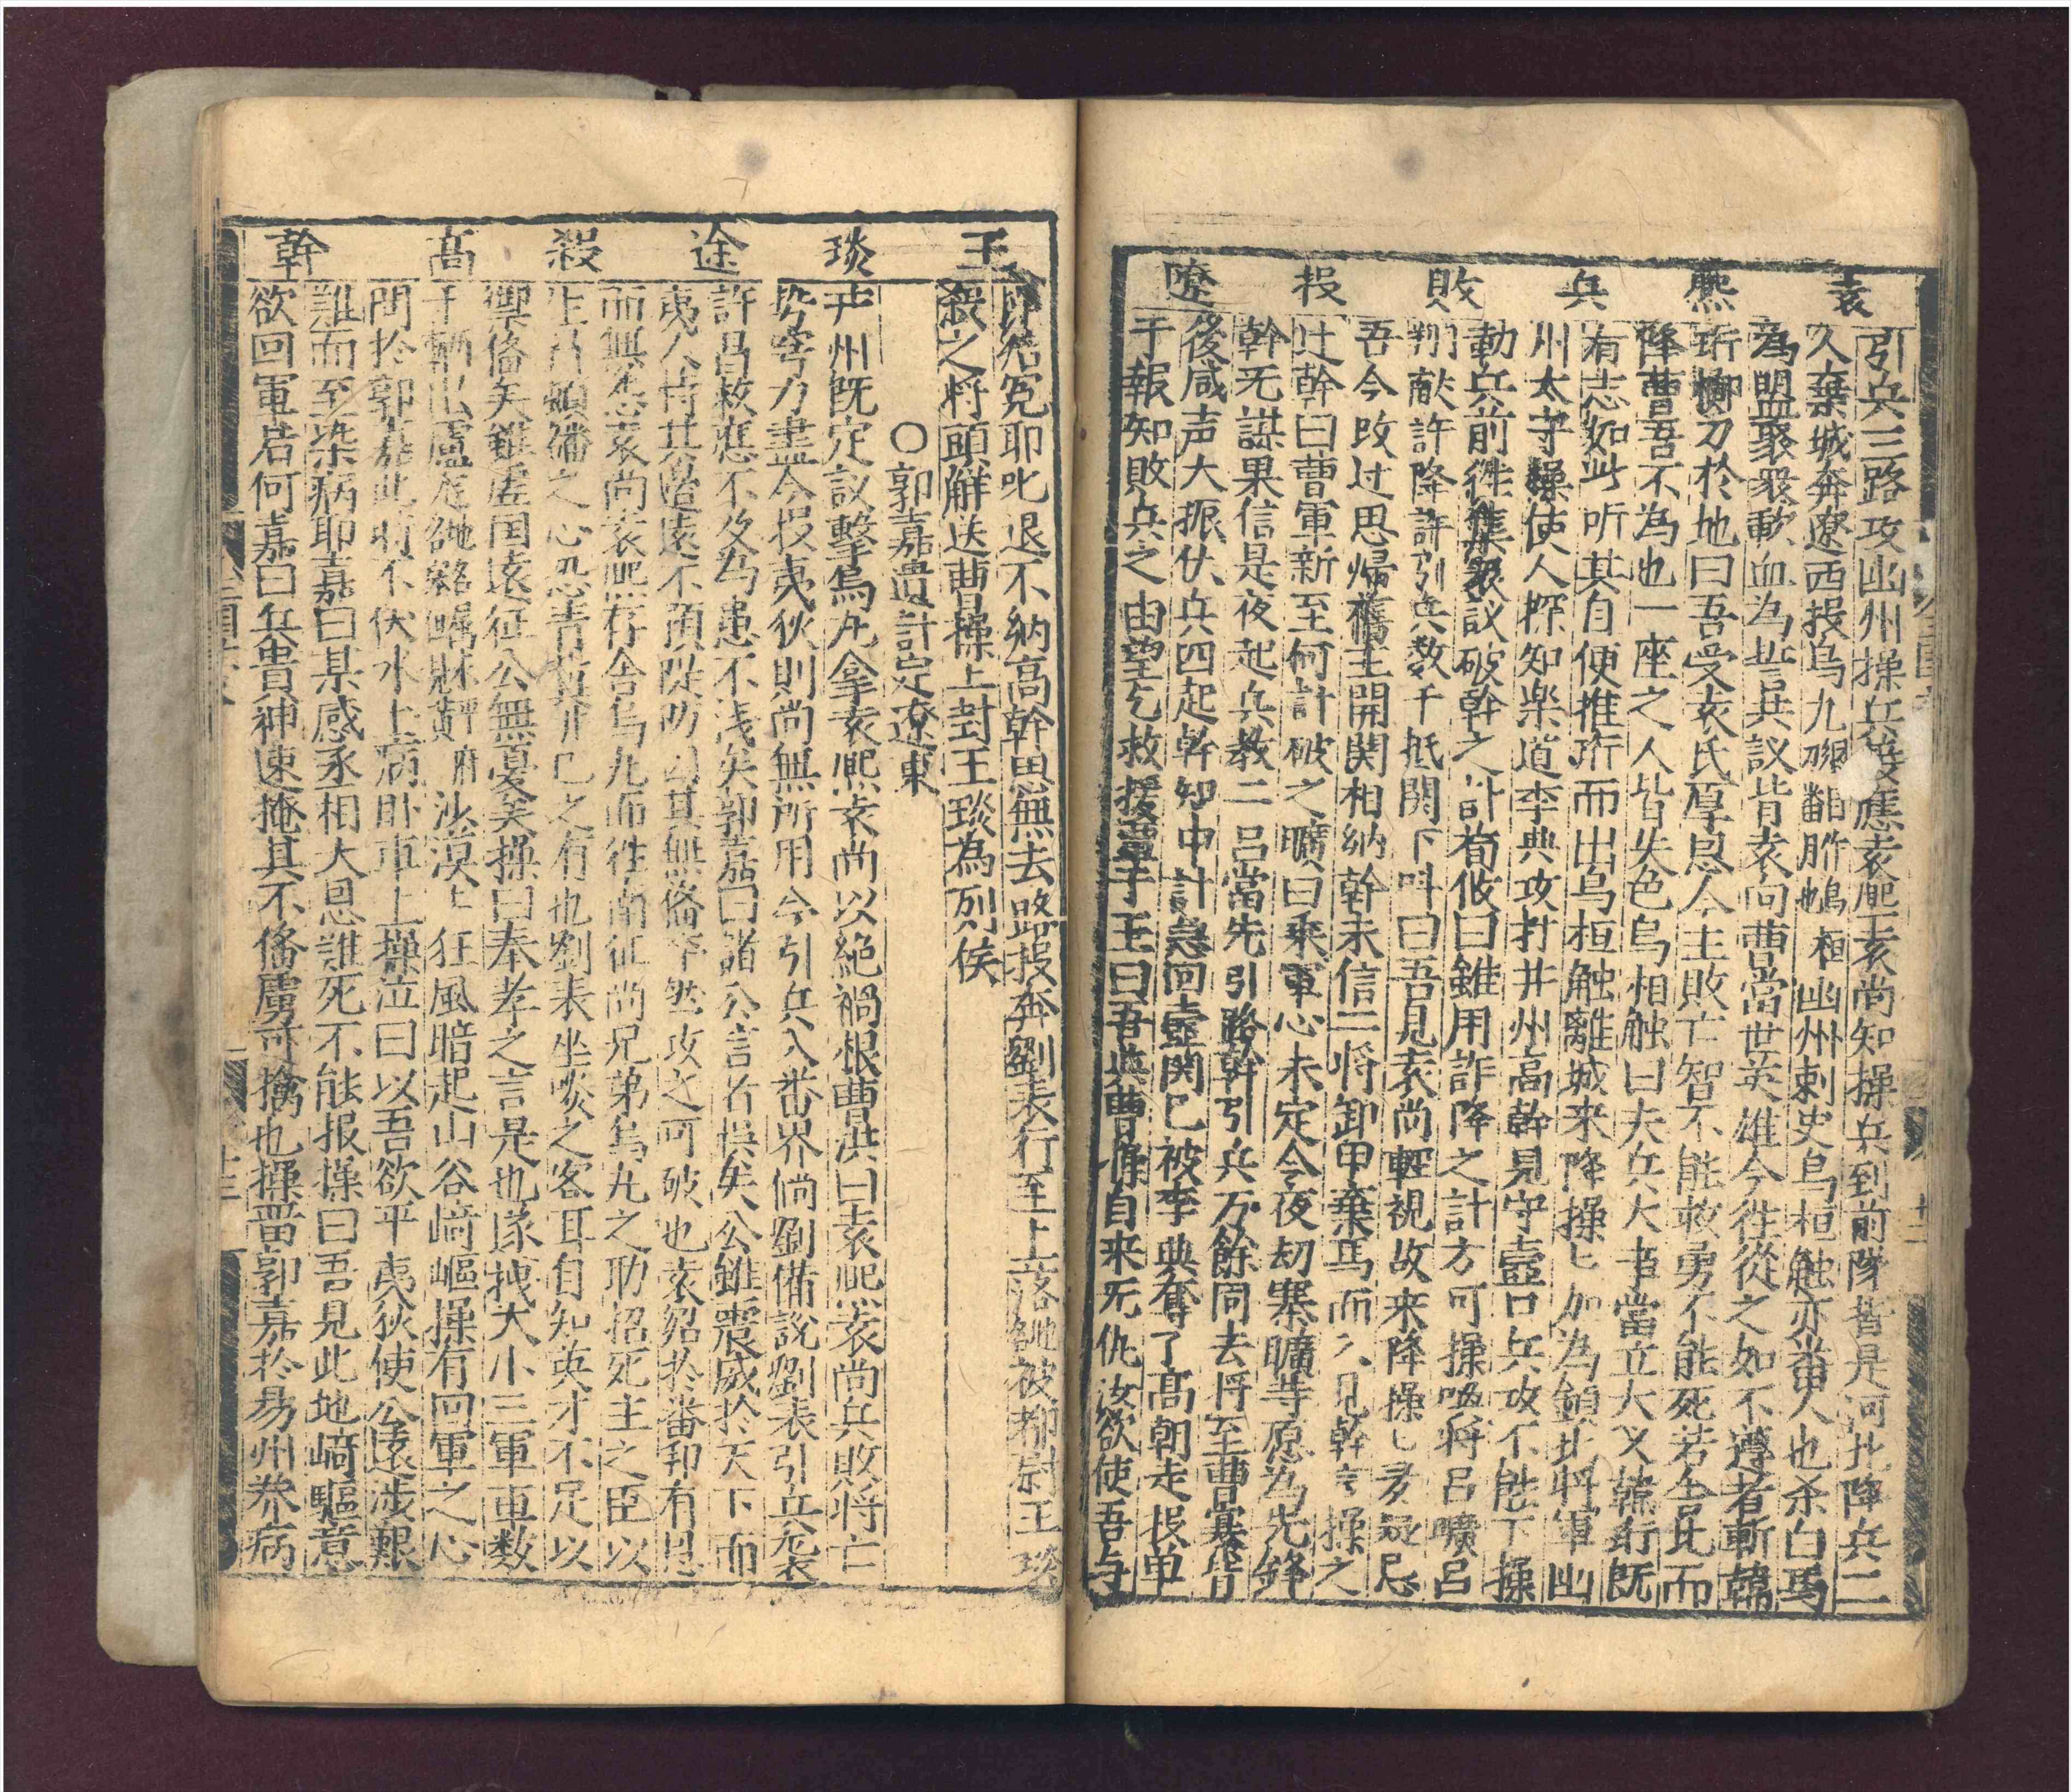 袁熙兵敗投遼
引兵三路攻幽州操兵接應袁熙袁尚知操兵到前隊皆是河北降兵二
人棄城奔遼西投烏九幽州刺史烏桓触亦番人也杀白馬
為盟聚衆歃血為共議背袁向曹當世英雄今往從之如不遵者斬韓
珩擲刀於地曰吾受袁氏厚恩今主敗亡智不能救勇不能死若令北而
降曹吾不為也一座之人皆失色烏桓触曰夫兵大事當立大义韓珩既
有志如此听其自便推珩而出烏桓触離城来降操匕加為鎮北将軍幽
州太守操使人探知楽道李典攻打井州高幹見守壺口兵攻不能下操
動兵前徃集衆議破幹之計荀攸曰雖用詐降之計方可操喚将呂曠呂
翔献許降許引兵数千抵関下呌曰吾見袁尚輕視故来降操匕多疑忌
吾今改过思㷌舊主開関相納幹未信二将卸甲棄馬而入見幹言操之
过幹曰曹軍新至何計破之曠曰乘軍心未定今夜刼寨曠等原為先鋒
幹无謀果信是夜起兵教二呂當先引路幹引兵万餘同去将至曹寨皆
後咸声大振伏兵四起幹知中計急回壺関已被李典奪了高朝走投单
于報知敗兵之由望乞救援单于王曰吾與曹操自来无仇汝欲使吾与
十二
王琰途殺高幹
即結冤耶叱退不納高幹思無去路投奔劉表行至上洛被都尉王琰
殺之将頭觧送曹操上封王琰為列侯
○郭嘉遺計定遼東
并州既定議擊烏九拿袁熙袁尚以絶禍根曹洪曰袁熙袁尚兵敗将亡
势窮力盡今投夷狄則尚無所用今引兵入番界倘劉備說劉表引兵袭
許昌救應不及為患不浅矣郭嘉曰諸公言者悮矣公雖震威於天下而
夷人恃其邉遠不預隄防因其無俻卒然攻之可破也袁紹於番和有恩
而興怎袁尚袁熙存舍烏九而徃南征尚兄弟烏九之助招死主之臣以
生冒頓之心恐青並非已之有也劉表坐啖之客耳自知英才不足以
禦俻矣雖虚国遠征公無憂矣操曰奉孝之言是也遂拽大小三軍車数
千輛出盧龍沙漠匕狂風暗起山谷﨑嶇操有回軍之心
問於郭嘉此時不伏水上病卧車上操泣曰以吾欲平夷狄使公遠涉艱
難而至染病耶嘉曰某感丞相大恩雖死不能报操曰吾見此地﨑驅意
欲回軍若何嘉曰兵貴神速掩其不俻虜可擒也操畱郭嘉於易州养病
十三